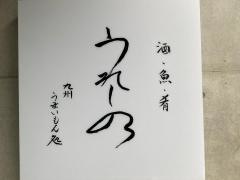 酒・魚・肴
うれしの
九州
うまいもん処